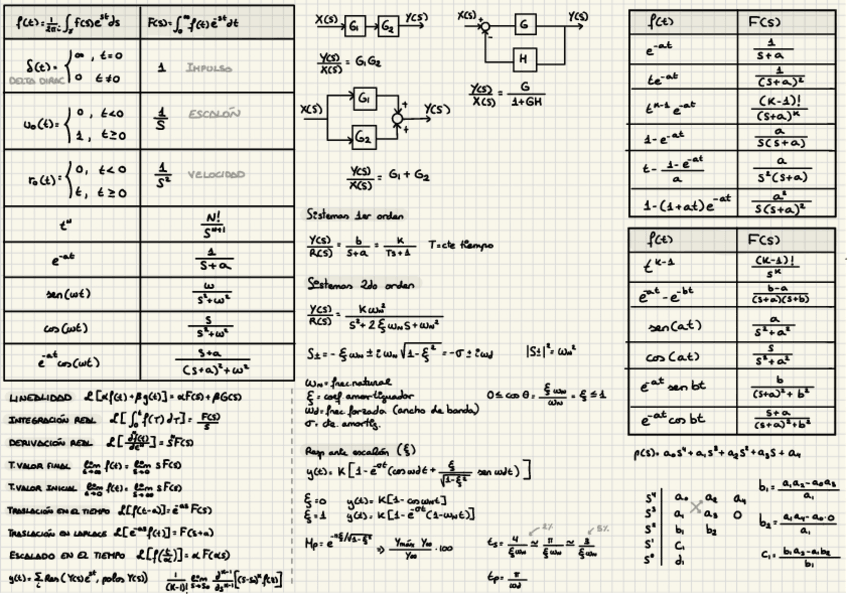 f(t)= 1/2πi ∫ F(s)e^st ds    F(s)= ∫₀^∞ f(t)e^-st dt
δ(t)= { ∞, t=0    1 IMPULSO
DELTA DIRAC { 0 t≠0
u₀(t)= { 0, t<0    1/S ESCALÓN
1, t≥0
r₀(t)= { 0, t<0    1/S² VELOCIDAD
t, t≥0
tⁿ    N!/S^(n+1)
e^-at    1/(S+a)
sen(ωt)    ω/(S²+ω²)
cos(ωt)    S/(S²+ω²)
e^-at cos(ωt)    (S+a)/((S+a)²+ω²)
LINEALIDAD ℒ[αf(t)+βg(t)]=αF(s)+βG(s)
INTEGRACIÓN REAL ℒ[∫₀^t f(τ)dτ]= F(s)/S
DERIVACIÓN REAL
T.VALOR FINAL lím t→∞ f(t)= lím s→0 S F(s)
T.VALOR INICIAL
TRASLACIÓN EN EL TIEMPO ℒ[f(t-a)]=e^-as F(s)
TRASLACIÓN EN LAPLACE ℒ[e^-as f(t)]=F(s+a)
ESCALADO EN EL TIEMPO ℒ[f(t/α)]=α F(αs)
y(t)= Σ Res(Y(s)e^st, polos Y(s))
X(S) G₁ G₂ Y(S)
Y(S)/X(S) = G₁G₂
X(S) G₁ + Y(S)
G₂ +
Y(S)/X(S) = G₁+G₂
X(S) + G Y(S)
- H
Y(S)/X(S) = G/(1+GH)
Sistemas 1er orden
Y(S)/R(S) = b/(S+a) = K/(Ts+1)    T=cte tiempo
Sistemas 2do orden
Y(S)/R(S) = Kωn²/(S²+2ξωnS+ωn²)
S±=-ξωn±iωn√(1-ξ²)=-σ±iωd    |S±|²=ωn²
ωn=frec natural
ξ=coef amortiguador    0≤cos θ= ξωn/ωn =ξ≤1
ωd=frec forzada (ancho de banda)
σ= de amortig.
Resp ante escalón (ξ)
y(t)=K[1-e^-σt(cos ωdt+ ξ/√(1-ξ²) sen ωdt)]
ξ=0    y(t)=K[1-cosωnt]
ξ=1    y(t)=K[1-e^-σt(1-ωnt)]
Mp=e^(-πξ/√(1-ξ²)) ⇒ (Ymáx Y∞)/Y∞ ·100
2%    5%
ts= 4/ξωn ≃ π/ξωn ≃ 3/ξωn
tp= π/ωd
f(t)    F(S)
e^-at    1/(S+a)
te^-at    1/(S+a)²
t^(K-1) e^-at    (K-1)!/(S+a)^K
1-e^-at    a/(S(S+a))
t- (1-e^-at)/a    a/(S²(S+a))
1-(1+at)e^-at    a²/(S(S+a)²)
f(t)    F(S)
t^(K-1)    (K-1)!/S^K
e^-at-e^-bt    (b-a)/((S+a)(S+b))
sen(at)    a/(S²+a²)
cos(at)    S/(S²+a²)
e^-at sen bt    b/((S+a)²+b²)
e^-at cos bt    (S+a)/((S+a)²+b²)
p(s)=a₀s⁴+a₁s³+a₂s²+a₃s+a₄
S⁴ a₀ a₂ a₄    b₁= (a₁a₂-a₀a₃)/a₁
S³ a₁ a₃ 0
S² b₁ b₂    b₂= (a₁a₄-a₀·0)/a₁
S¹ C₁
S⁰ d₁    C₁= (b₁a₃-a₁b₂)/b₁